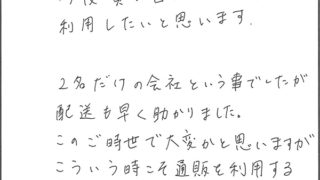 利用したいと思います.
2名だけの会社という事でしたが
配送も早く助かりました。
このご時世で大変かと思いますが
こういう時こそ通販を利用する